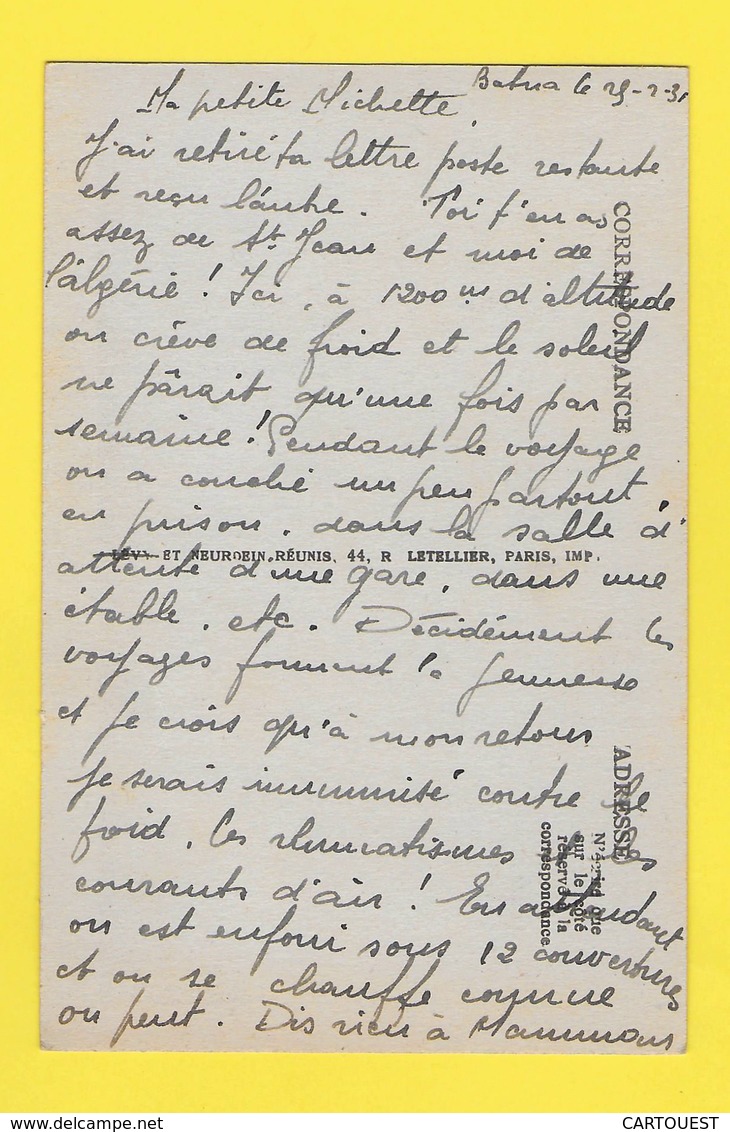 Batna le 25-2-31
Ma petite Michette
J'ai retiré ta lettre poste restante
et reçu l'autre. Toi t'en as
assez de St. Jean et moi de
l'algérie ! Ici, à 1200 m d'altitude
on crève de froid et le soleil
ne pârait qu'une fois par
semaine ! Pendant le voyage
on a couché un peu partout,
en prison, dans la salle d'
attente d'une gare, dans une
étable, etc. Décidément les
voyages forment la jeunesse
et je crois qu'à mon retour
je serais immunisé contre le
froid, les rhumatismes les
courants d'air ! En attendant
on est enfoui sous 12 couvertures
et on se chauffe comme
on peut. Dis rien à Maman
CORRESPONDANCE
LÉVY ET NEURDEIN RÉUNIS, 44, R LETELLIER, PARIS, IMP.
ADRESSE
N'écrire que
sur le côté
réservé à la
correspondance
CARTOUEST